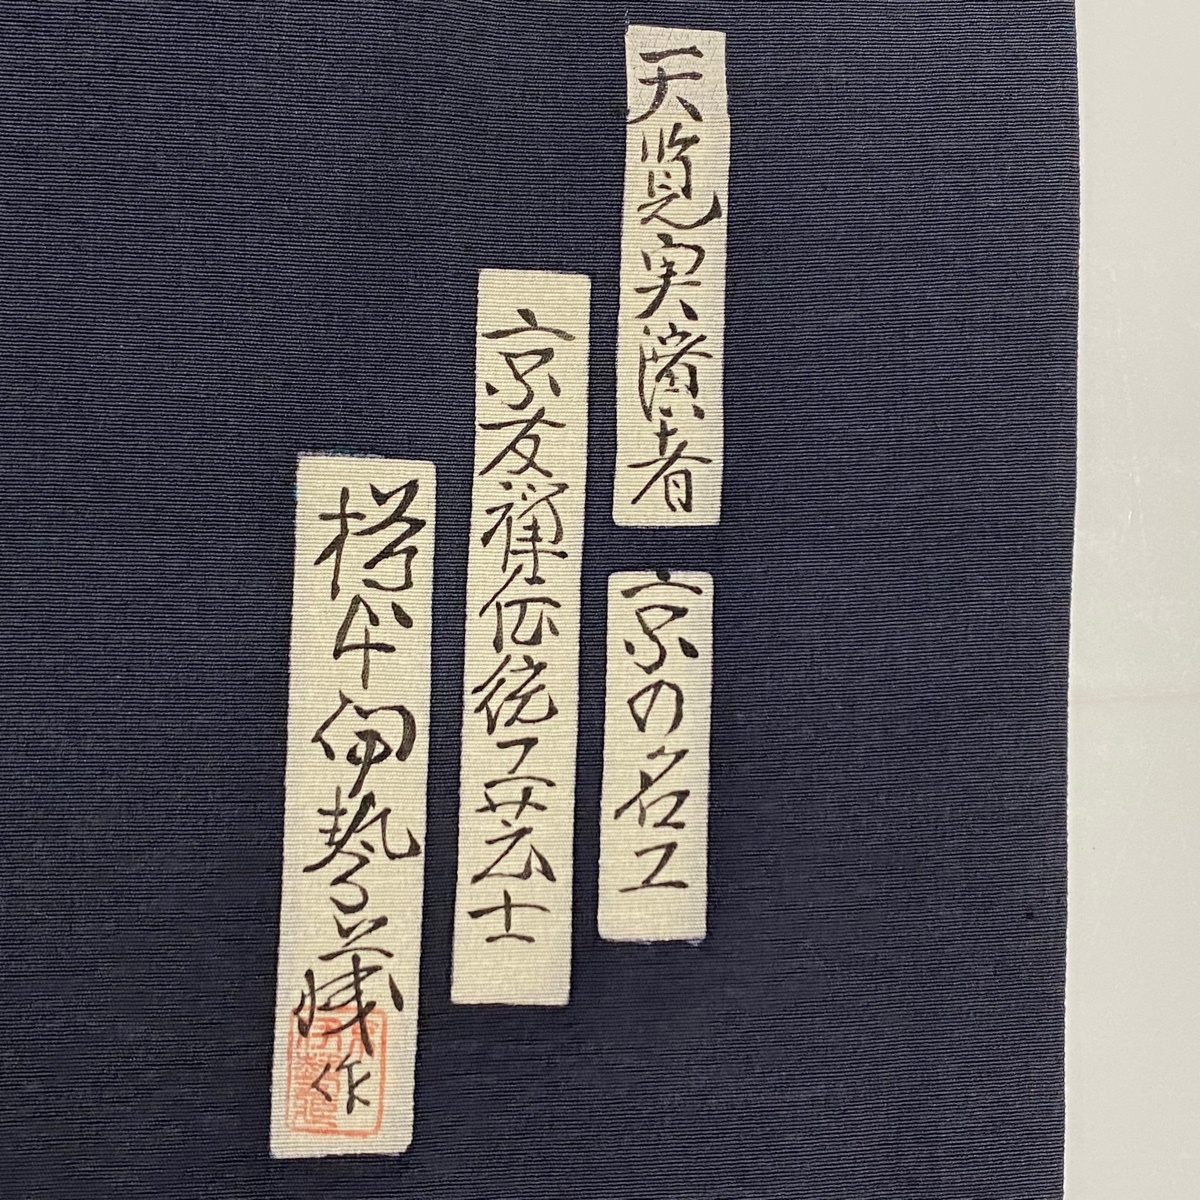 天覧実演者 京の名工
京友禅伝統工芸士
伊勢蔵作